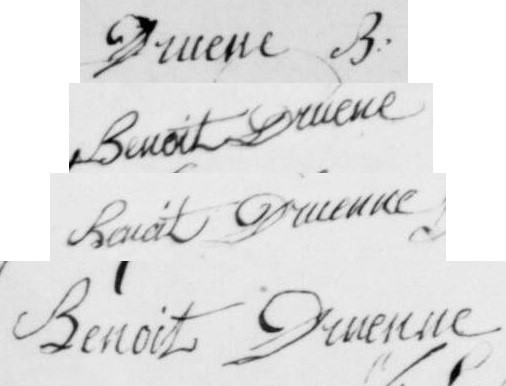 Druene B.
Benoit Druene
Benoit Druenne
Benoit Druenne